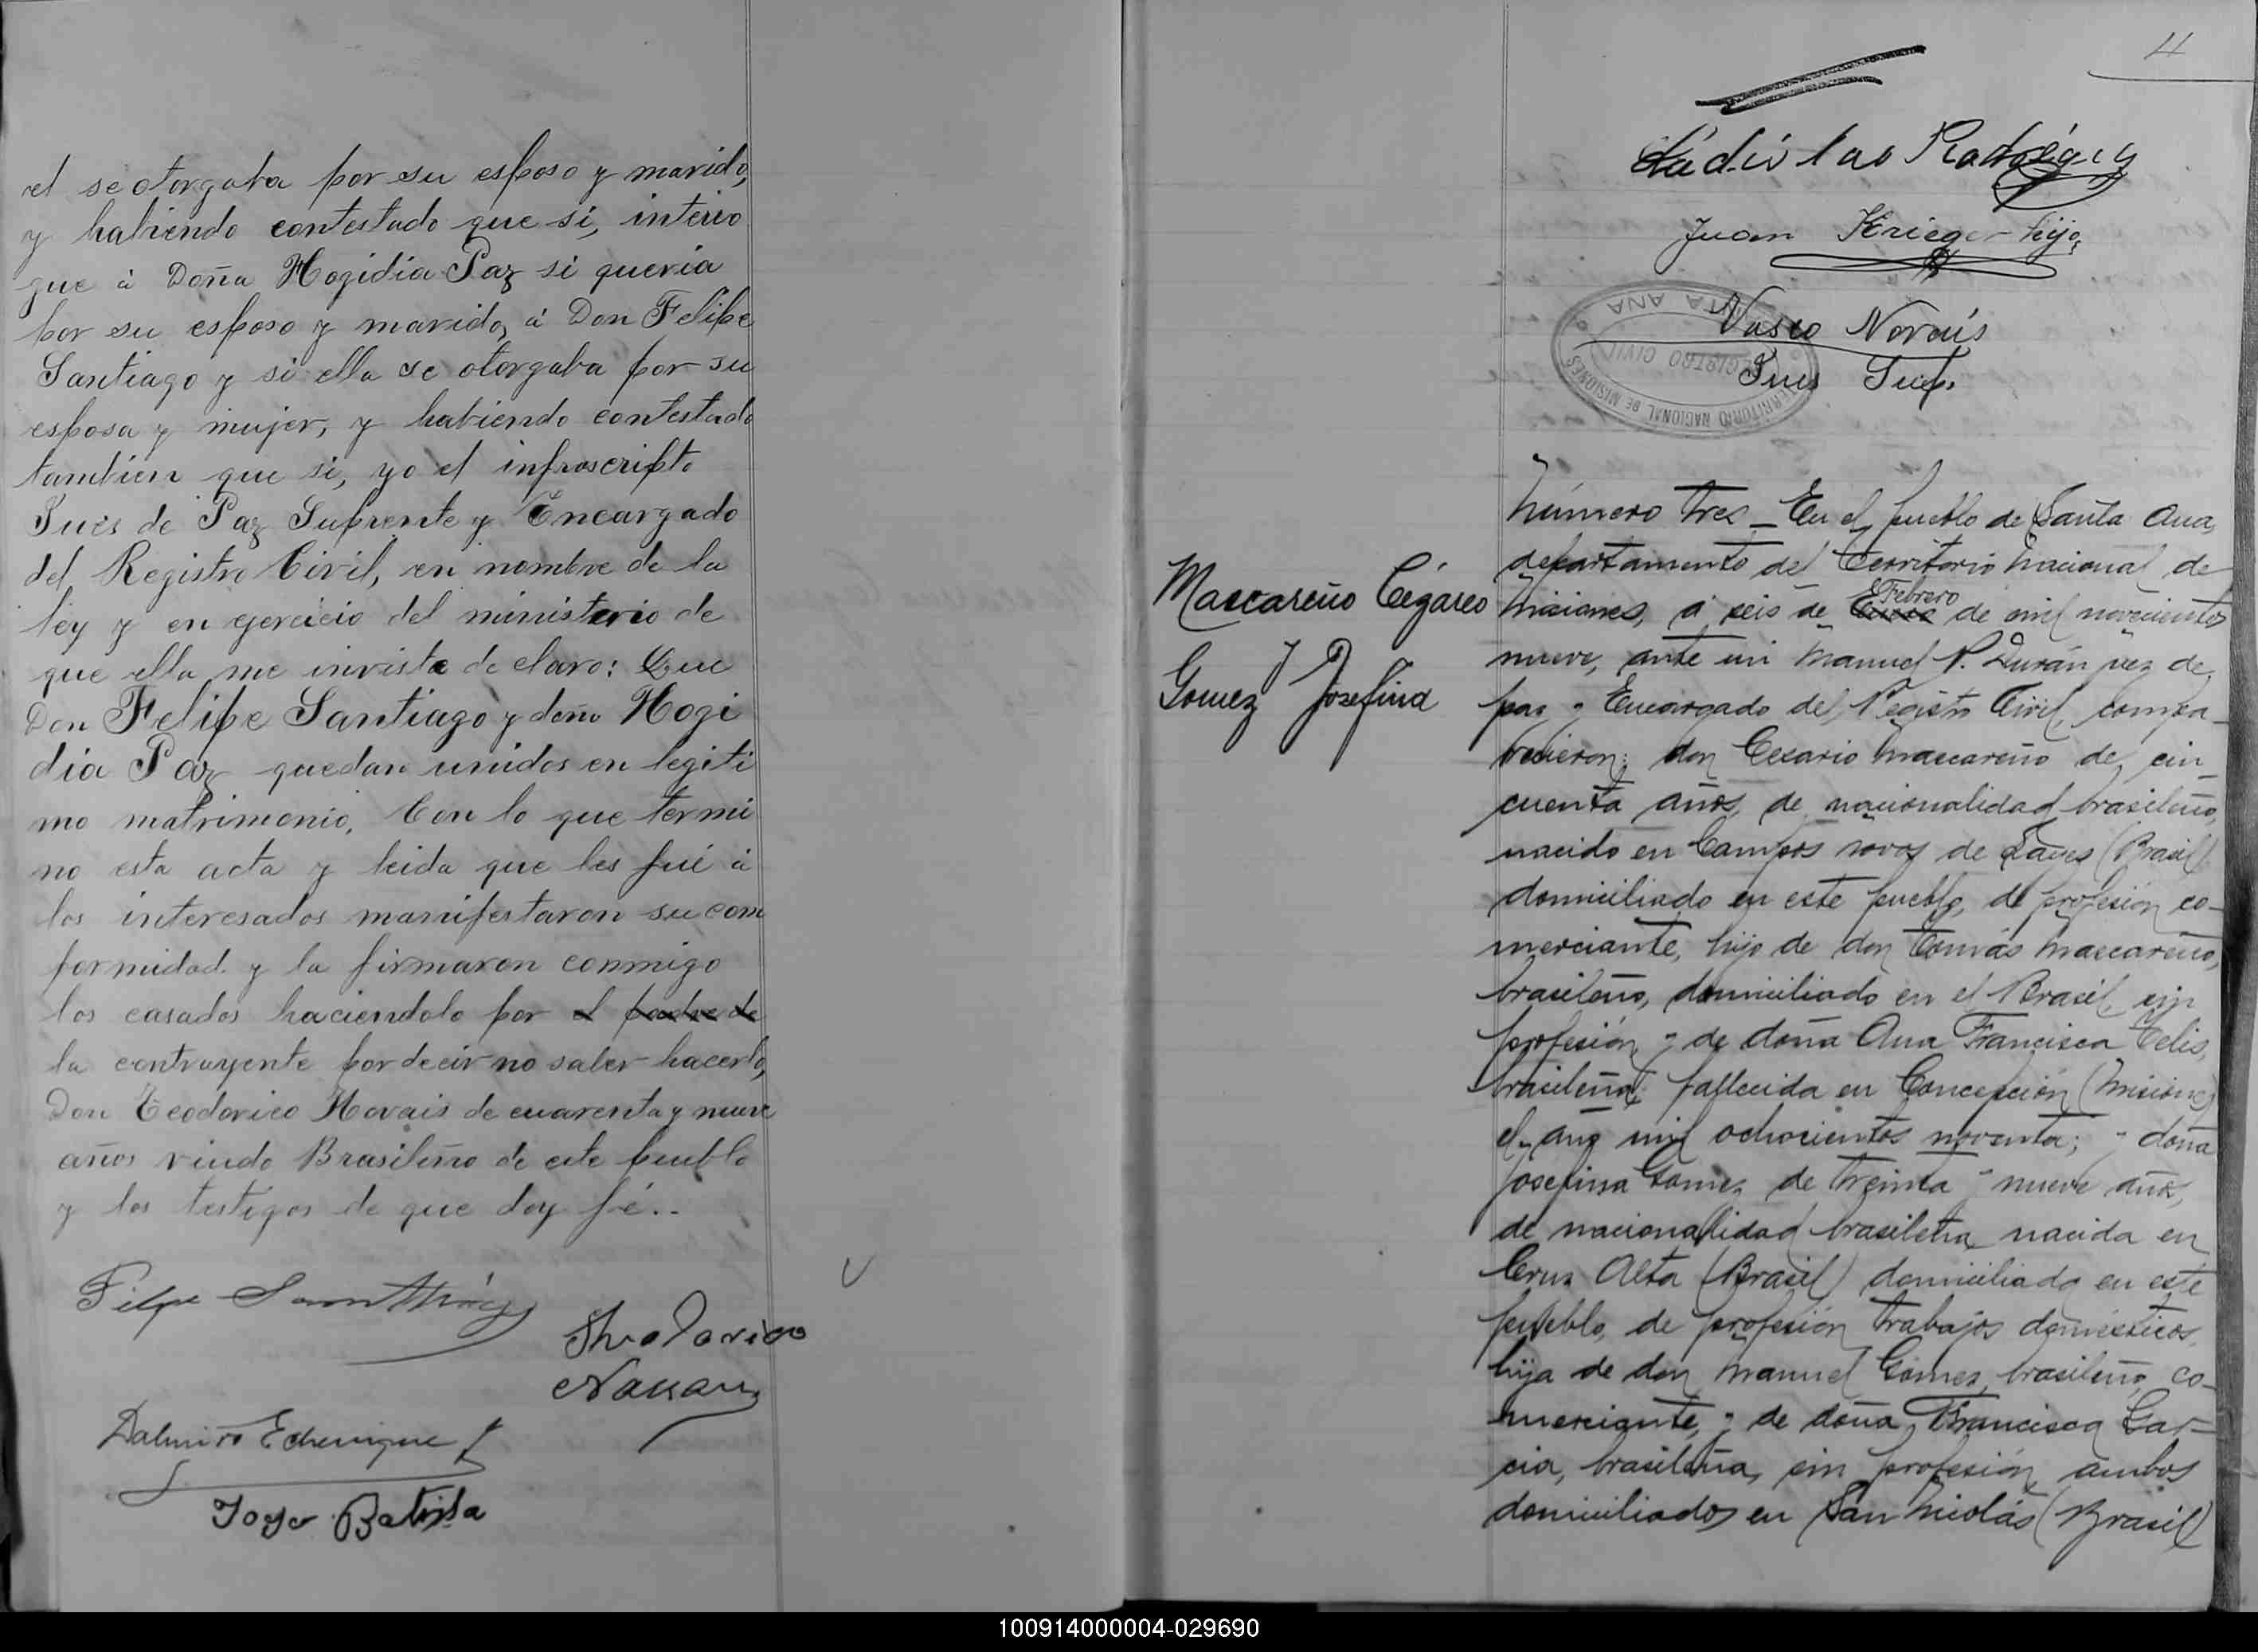 el se otorgaba por su esposo y marido,
y habiendo contestado que si, interro
gue á Doña Hogidia Paz si queria
por su esposo y marido, á Don Felipe
Santiago y si ella se otorgaba por su
esposa y mujer, y habiendo contestado
tambien que si, yo el infrascripto
Jues de Paz Suprente y Encargado
del Registro Civil, en nombre de la
ley y en ejercicio del ministerio de
que ella me inviste declaro: Que
Don Felipe Santiago y doña Hogi
dia Paz quedan unidos en legiti
mo matrimonio. Con lo que termi
no esta acta y leida que les fué á
los interesados manifestaron su con
formidad y la firmaron conmigo
los casados haciendolo por el padre de
la contrayente por decir no saber hacerlo,
Don Teodorico Novais de cuarenta y nueve
años viudo Brasileño de este pueblo
y los testigos de que doy fé..
Felipe
Dalmiro Echenique
João Batista
4
Ladislao Rodriguez
Juan Krieger hijo
Vasco Novais
Jues Sup.
TERRITORIO NACIONAL DE MISIONES
REGISTRO CIVIL
SANTA ANA
Mascareño Cégareo
y
Gomez Josefina
Número tres _ En el pueblo de Santa Ana,
departamento del Territorio Nacional de
Misiones, á seis de Febrero de mil novecientos
nueve, ante mi Manuel P. Durán juez de
paz y Encargado del Registro Civil, compa-
recieron: don Cesario Mascareño de cin-
cuenta años, de nacionalidad brasileño,
nacido en Campos novos de Lages (Brasil)
domiciliado en este pueblo, de profesión co-
merciante, hijo de don Tomás Mascareño,
brasileño, domiciliado en el Brasil, sin
profesión, y de doña Ana Francisca Telis,
brasileña, fallecida en Concepción (Misiones)
el año mil ochocientos noventa; y doña
Josefina Gomez de treinta y nueve años,
de nacionalidad brasileña nacida en
Cruz Alta (Brasil) domiciliada en este
pueblo, de profesión trabajos domésticos,
hija de don Manuel Gomes, brasileño, co-
merciante, y de doña Francisca Gar-
cia, brasileña, sin profesión, ambos
domiciliados en San Nicolás (Brasil)
100914000004-029690